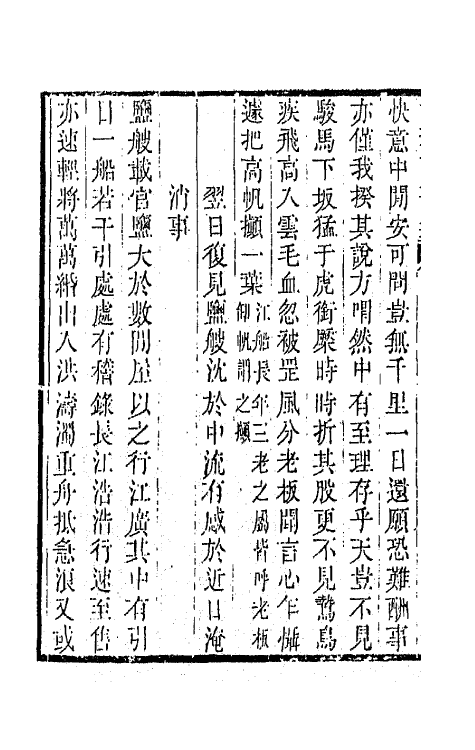 快意中間安可問豈無千里一日還願恐難酬事
亦僅我揆其說方喟然中有至理存乎天豈不見
駿馬下坂猛于虎銜橜時時折其股更不見鷙鳥
疾飛高入雲毛血忽被罡風分老板聞言心乍懾
遽把高帆攧一葉江船長年三老之屬皆呼老板
卸帆謂之攧
翌日復見鹽艘沈於中流有感於近日淹
消事
鹽艘載官鹽大於數間屋以之行江廣其中有引
目一船若干引處處有稽錄長江浩浩行速至售
亦速輕將萬萬緡出入洪濤濁重舟抵急浪又或